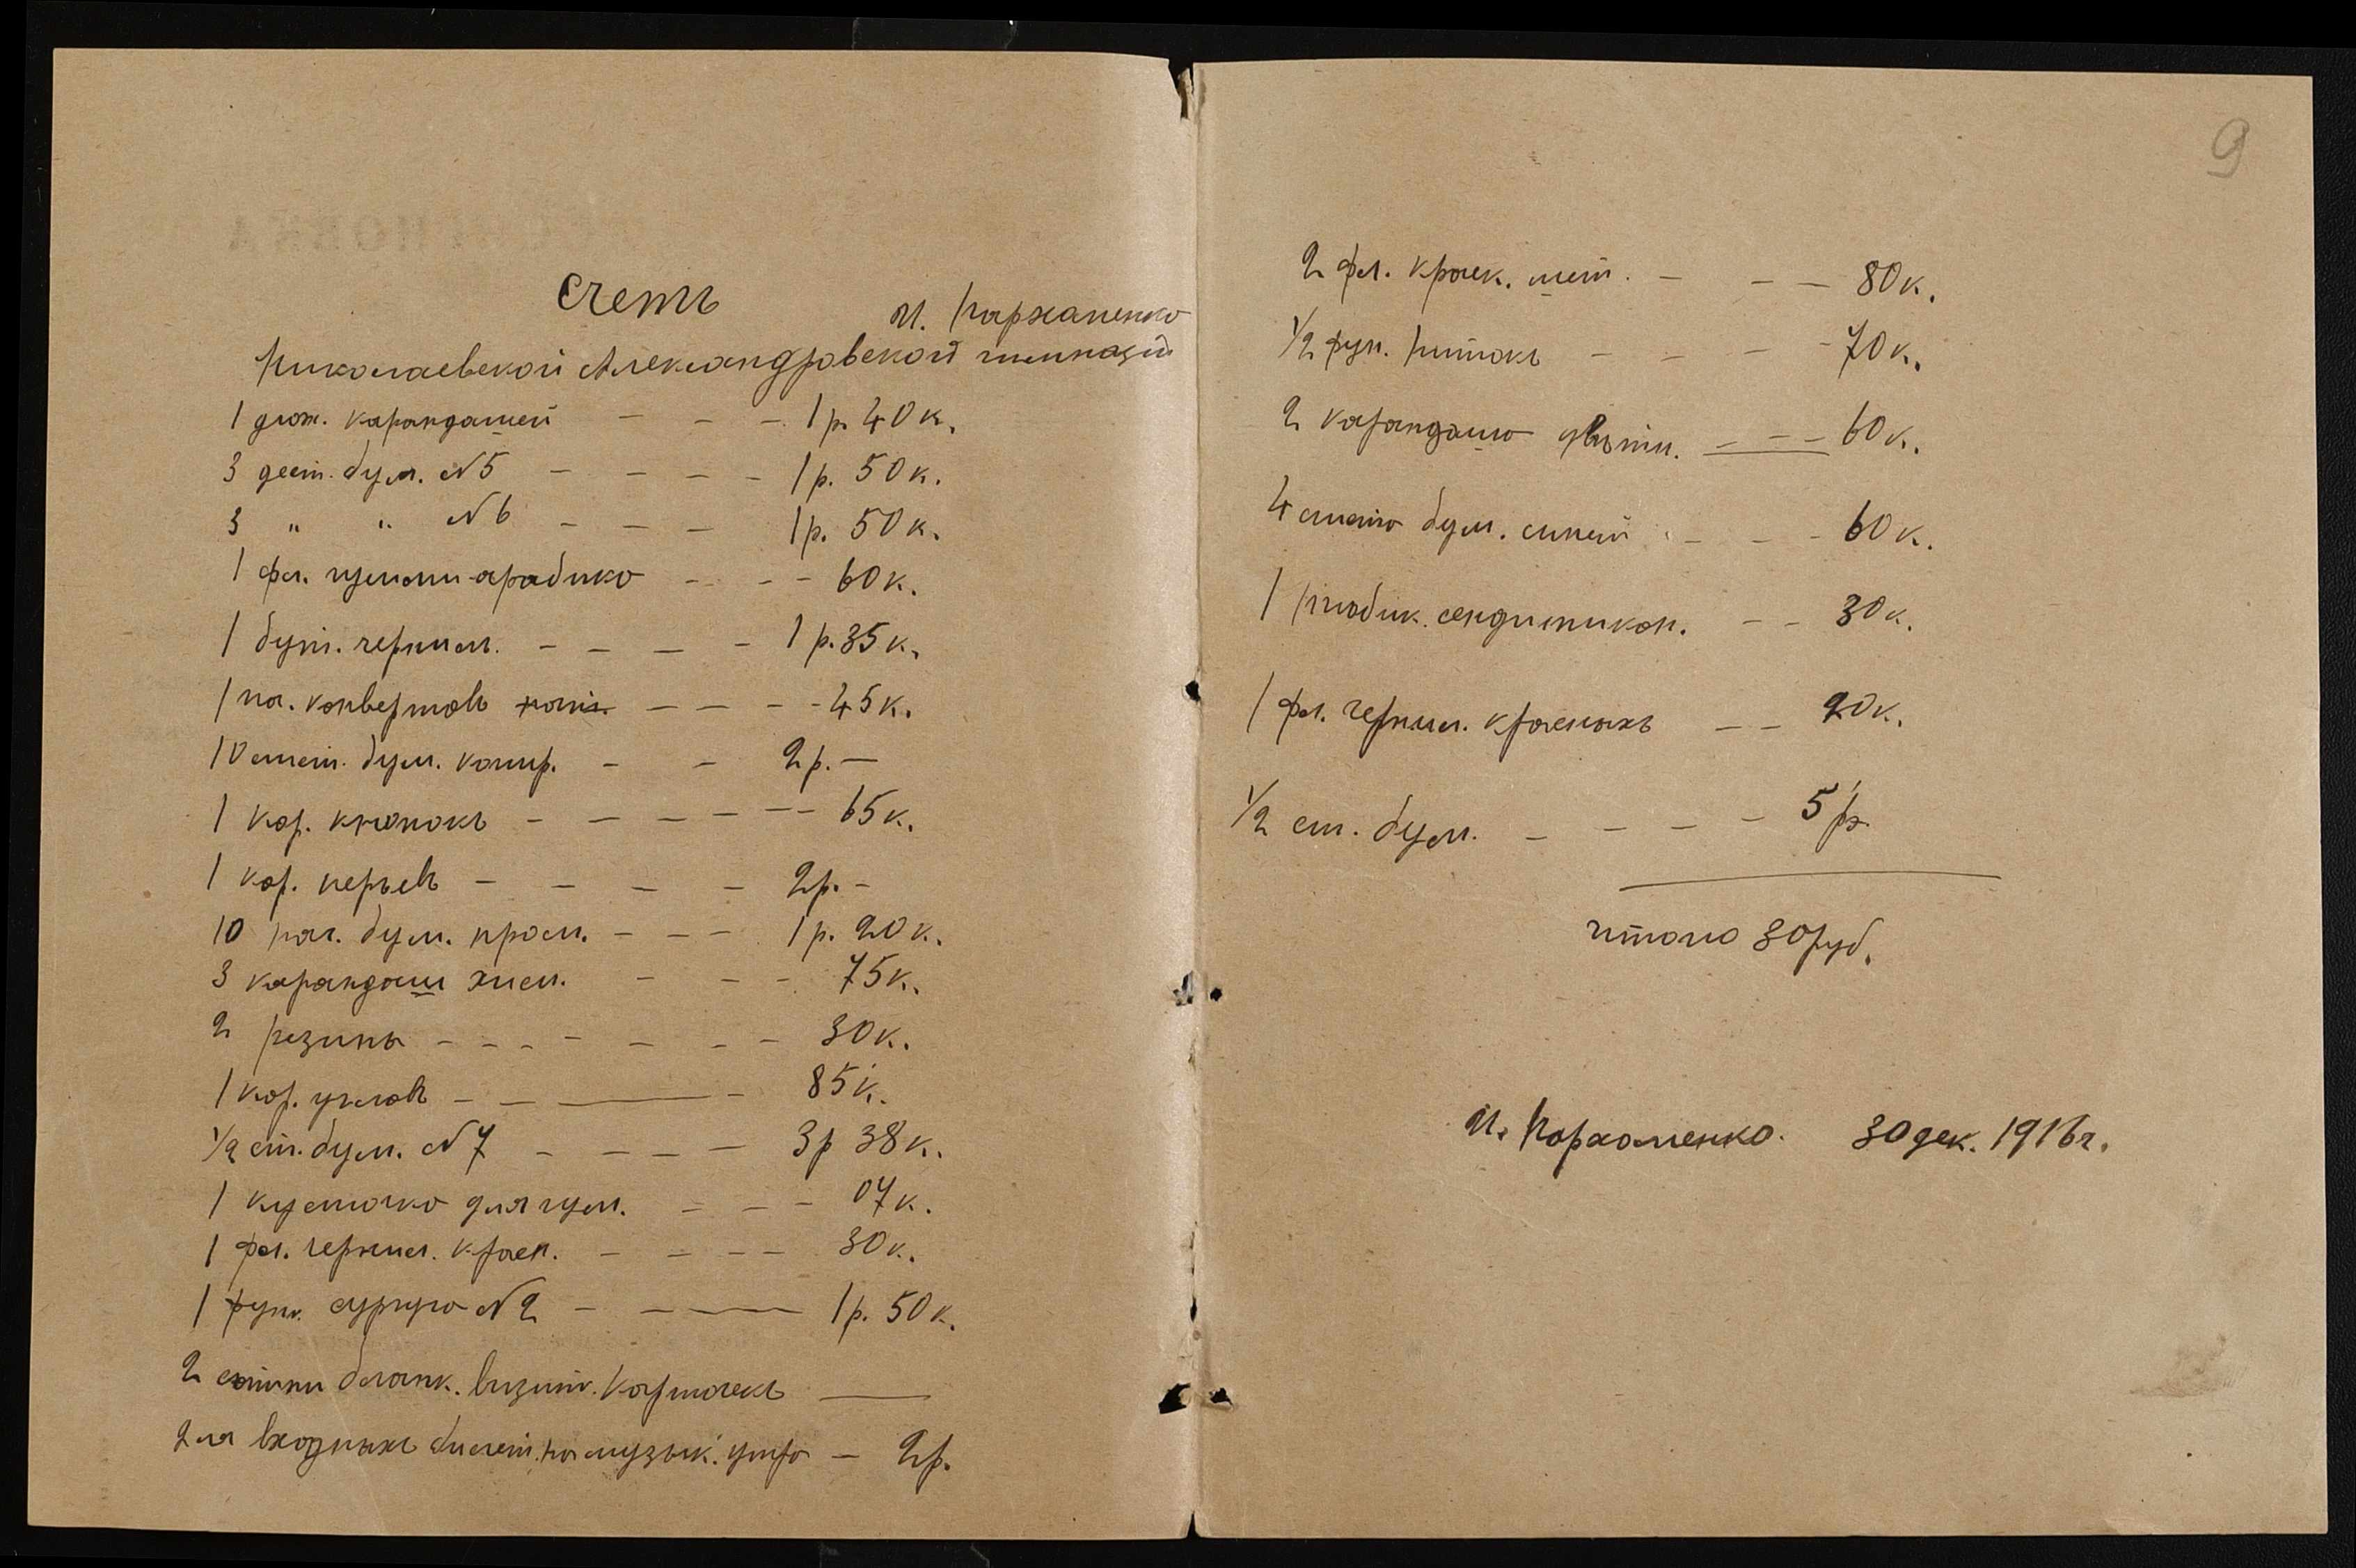 Счетъ
И. Пархаменко
Николаевской Александровской гимназіи
1 дюж. карандашей - - - 1 р. 40 к.
3 дест. бум. N5 - - - - 1 р. 50 к.
3 " " N6 - - - 1 р. 50 к.
1 фл. гумми-арабика - - - 60 к.
1 бут. чернил. - - - - 1 р. 35 к.
1 па. конвертовъ - - - - 45 к.
10 лист. бум. копир. - - 2 р. —
1 кор. кнопокъ - - - - - - 65 к.
1 кор. перьевъ - - - - 2 р. -
10 пач. бум. пром. - - - 1 р. 20 к.
3 карандаш хим. - - - 75 к.
2 резины - - - - - - - 30 к.
1 кор. углов - - — - 85 к.
1/2 ст. бум. N7 - - - - 3 р 38 к.
1 кисточка для гум. - - - 07 к.
1 фл. чернил. красн. - - - - 30 к.
1 фун. сургуча N2 - - — 1 р. 50 к.
2 сотни бланк. визит. карточекъ —
для входныхъ билет. на музык. утро - 2 р.
9
2 фл. краск. - - - 80 к.
1/2 фун. нитокъ - - - - 70 к.
2 карандаша цвѣтн. - - - 60 к.
4 листа бум. синей - - - 60 к.
1 тюбик. синдитикон. - - 30 к.
1 фл. чернил. красныхъ - - 20 к.
1/2 ст. бум. - - - - 5 р.
итого 30 руб.
И. Пархоменко. 30 дек. 1916 г.